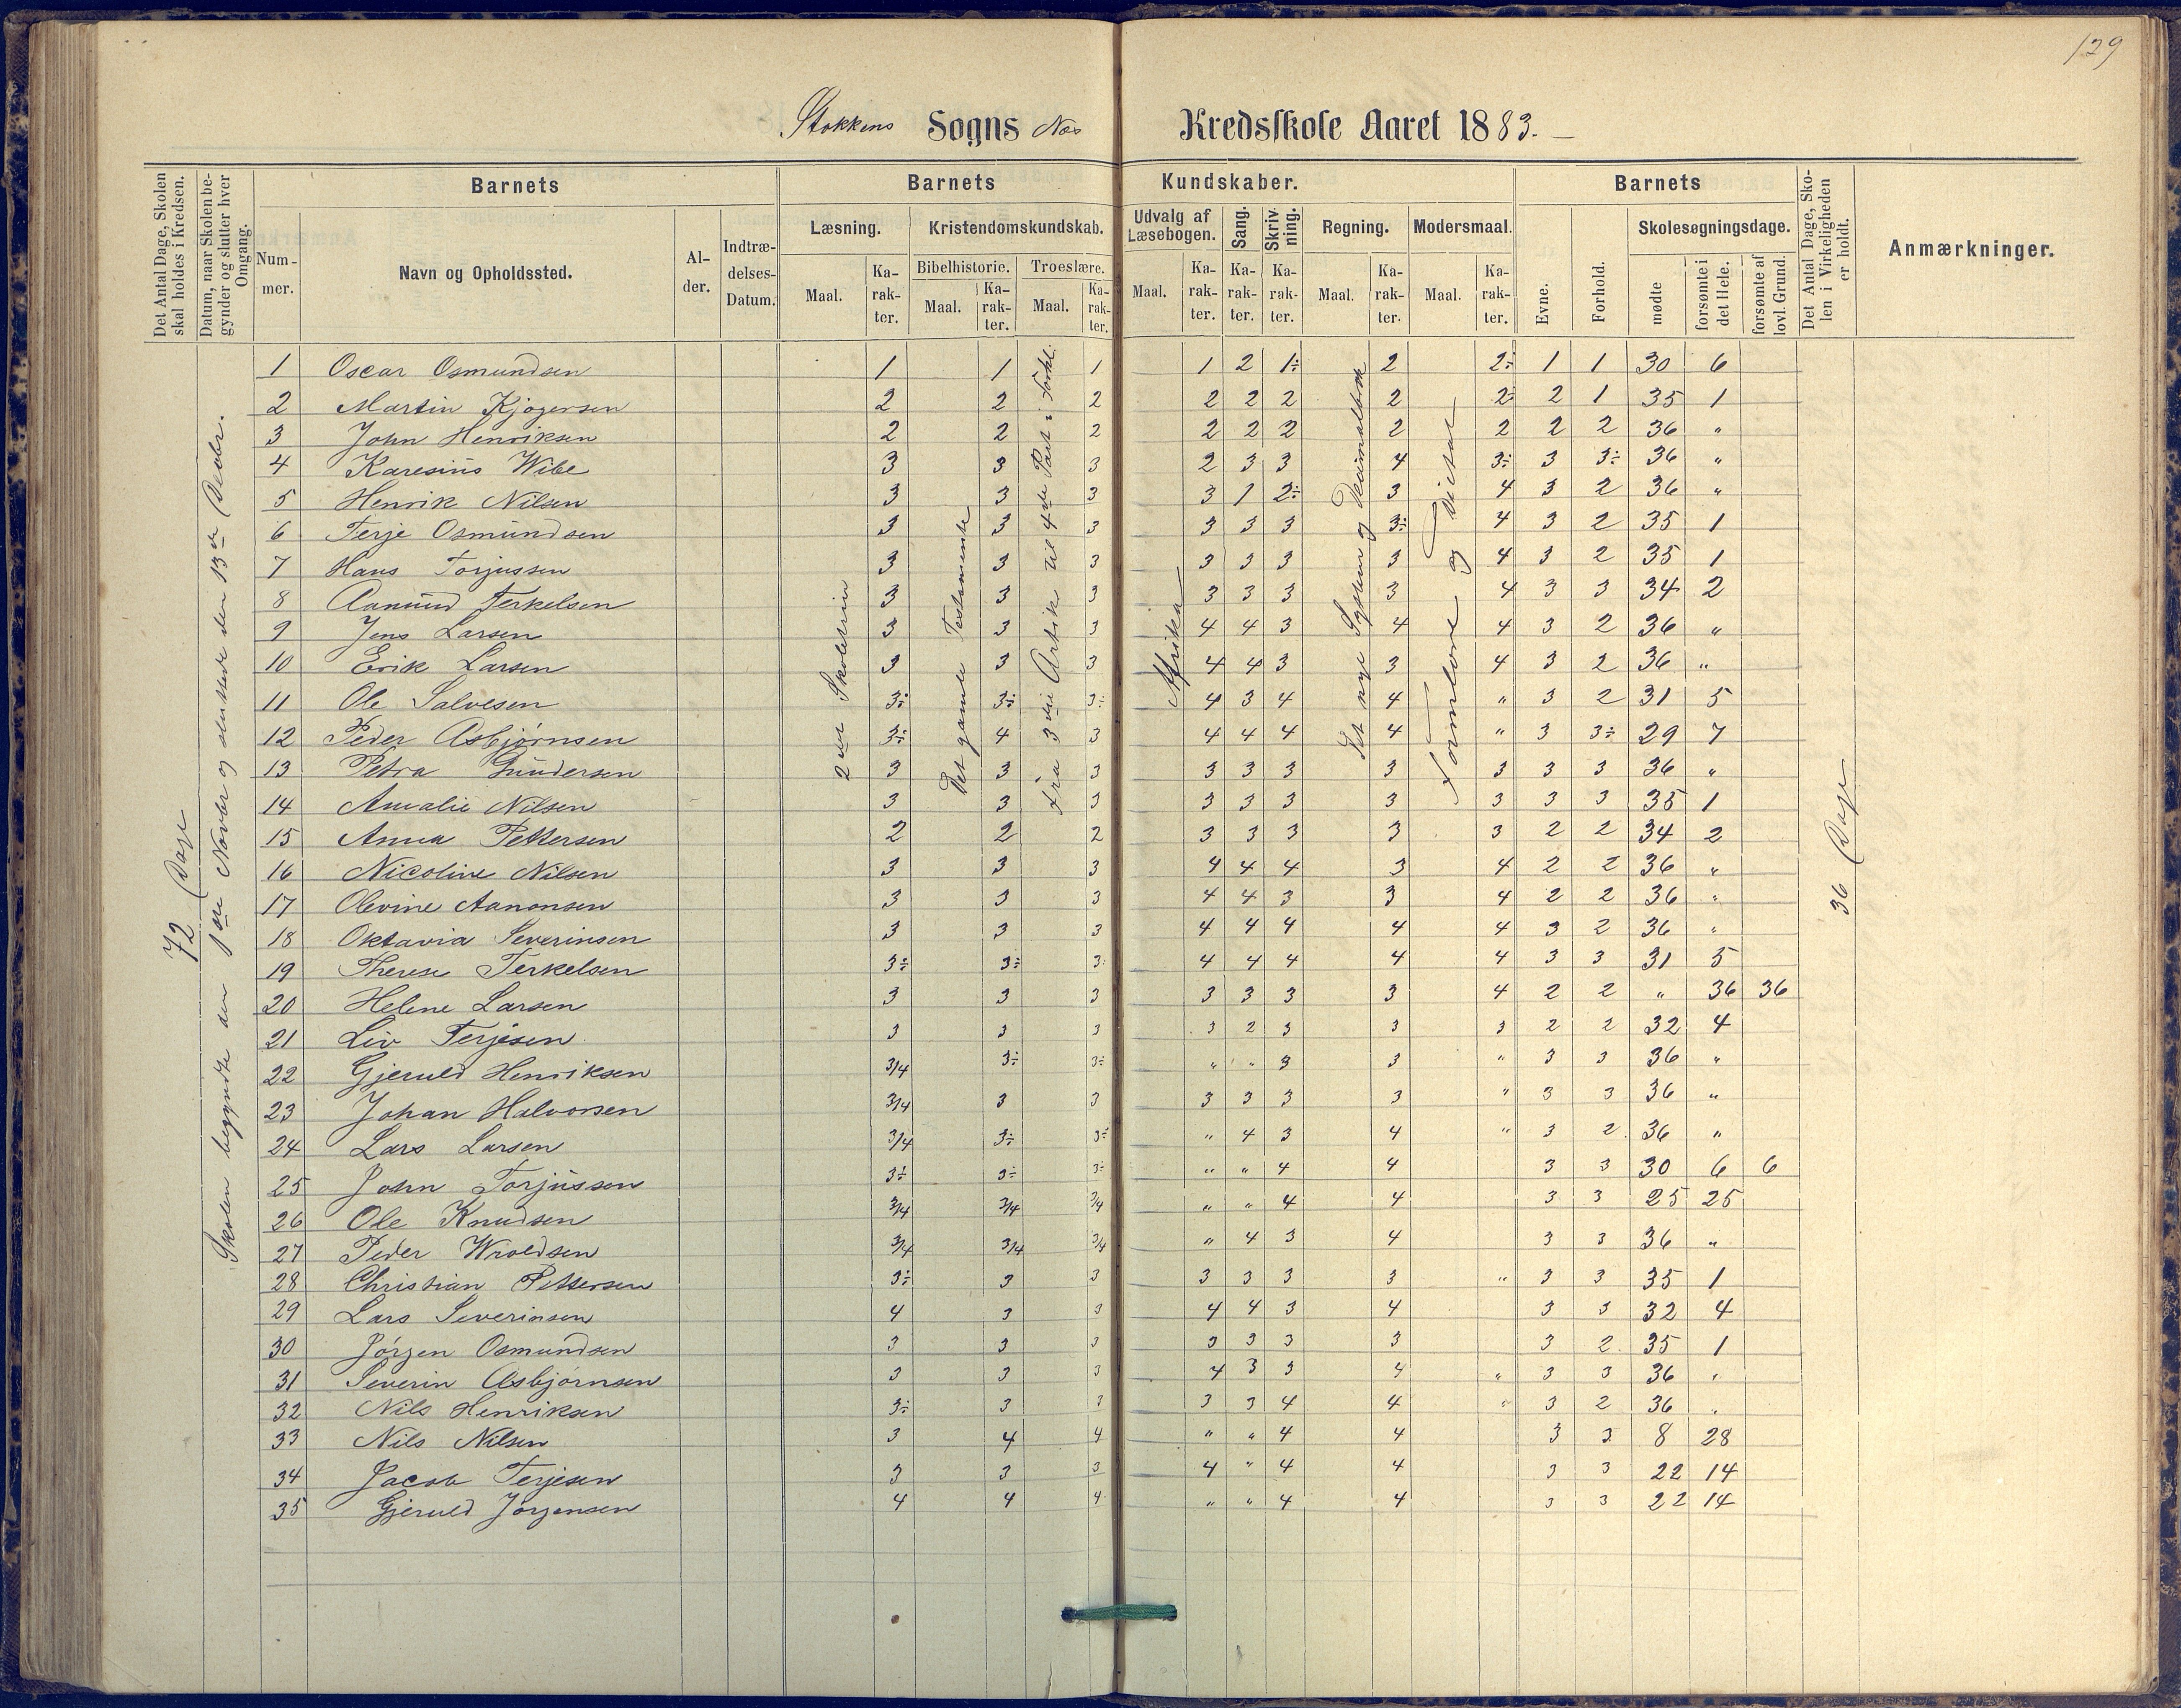 129
Stokkens Sogns Næs Kredsskole Aaret 1883. —
Det Antal Dage, Skolen skal holdes i Kredsen.
Datum, naar Skolen begynder og slutter hver Omgang.
Barnets
Nummer.
Navn og Opholdssted.
Alder.
Indtrædelses-Datum.
Barnets Kundskaber.
Læsning.
Maal. Karakter.
Kristendomskundskab.
Bibelhistorie. Troeslære.
Maal. Karakter. Maal. Karakter.
Udvalg af Læsebogen.
Maal. Karakter.
Sang. Karakter.
Skrivning. Karakter.
Regning.
Maal. Karakter.
Modersmaal.
Maal. Karakter.
Barnets
Evne.
Forhold.
Skolesøgningsdage.
mødte
forsømte i det Hele.
forsømte af lovl. Grund.
Det Antal Dage, Skolen i Virkeligheden er holdt.
Anmærkninger.
72 Dage
Skolen begyndte den 1ste Novbr og sluttede den 13de Decbr.
2det Skoletrin
Det gamle Testamente
Fra 3die Artik til 4de Part i Forkl.
Afrika
Det nye System og Decimalbrøk
Formlære og
36 Dage
1 Oscar Osmundsen 1 1 1 1 2 1÷ 2 2÷ 1 1 30 6
2 Martin Kjøgersen 2 2 2 2 2 2 2 2÷ 2 1 35 1
3 John Henriksen 2 2 2 2 2 2 2 2 2 2 36 "
4 Karesius Wibe 3 3 3 2 3 3 4 3÷ 3 3÷ 36 "
5 Henrik Nilsen 3 3 3 3 1 2÷ 3 4 3 2 36 "
6 Terje Osmundsen 3 3 3 3 3 3 3÷ 4 3 2 35 1
7 Hans Torjussen 3 3 3 3 3 3 3 4 3 2 35 1
8 Aanund Terkelsen 3 3 3 3 3 3 3 4 3 3 34 2
9 Jens Larsen 3 3 3 4 4 3 4 4 3 2 36 "
10 Erik Larsen 3 3 3 4 4 3 3 4 3 2 36 "
11 Ole Salvesen 3÷ 3÷ 3÷ 4 3 4 4 " 3 2 31 5
12 Peder Asbjørnsen 3÷ 4 3 4 4 4 4 " 3 3÷ 29 7
13 Petra Gundersen 3 3 3 3 3 3 3 3 3 3 36 "
14 Amalie Nilsen 3 3 3 3 3 3 3 3 3 3 35 1
15 Anna Pettersen 2 2 2 3 3 3 3 3 2 2 34 2
16 Nicoline Nilsen 3 3 3 4 4 4 3 4 2 2 36 "
17 Olevine Aanonsen 3 3 3 4 4 3 3 4 2 2 36 "
18 Oktavia Severinsen 3 3 3 4 4 4 4 4 3 2 36 "
19 Therese Terkelsen 3÷ 3÷ 3÷ 4 4 4 4 4 3 3 31 5
20 Helene Larsen 3 3 3 3 3 3 3 4 2 2 " 36 36
21 Liv Terjesen 3 3 3 3 2 3 3 3 2 2 32 4
22 Gjeruld Henriksen 3/4 3÷ 3÷ " " 3 3 " 3 3 36 "
23 Johan Halvorsen 3/4 3 3 3 3 3 3 " 3 3 36 "
24 Lars Larsen 3/4 3÷ 3÷ " 4 3 4 " 3 2 36 "
25 John Torjussen 3÷ 3÷ 3÷ " " 4 4 3 3 30 6 6
26 Ole Knudsen 3/4 3/4 3/4 " " 4 4 3 3 25 25
27 Peder Wroldsen 3/4 3/4 3/4 " 4 3 4 3 3 36 "
28 Christian Pettersen 3÷ 3 3 3 3 3 3 " 3 3 35 1
29 Lars Severinsen 4 3 3 4 4 3 4 3 3 32 4
30 Jörgen Osmundsen 3 3 3 3 3 3 3 3 2 35 1
31 Severin Asbjørnsen 3 3 3 4 3 3 4 " 3 3 36 "
32 Nils Henriksen 3÷ 3 3 3 3 4 4 " 3 2 36 "
33 Nils Nilsen 3 4 4 " " 4 4 3 3 8 28
34 Jacob Terjesen 3 3 3 4 " 4 4 3 3 22 14
35 Gjeruld Jörgensen 4 4 4 " " 4 4 3 3 22 14